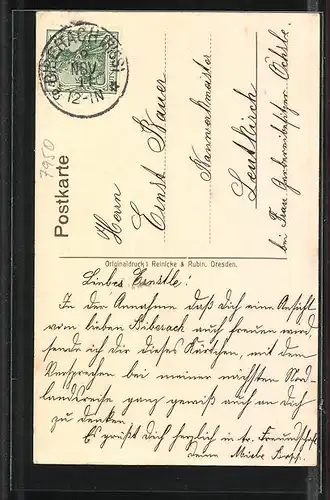 BIBERACH (RISS)
NOV
12-1N
7950
Postkarte
Herrn
Ernst Bauer
Leutkirch
bei Frau Gerbereibesitzer Ochsle.
Originaldruck: Reinicke & Rubin, Dresden.
Liebes Ernstle!
In der Annahme daß Dich eine Ansicht
vom lieben Biberach auch freuen wird,
sende ich dir dieses Kärtchen, mit dem
Versprechen bei meiner nächsten Nord-
landreise ganz gewiß auch an Dich
zu denken.
Es grüßt dich herzlich in tr. Freundschaft
deine